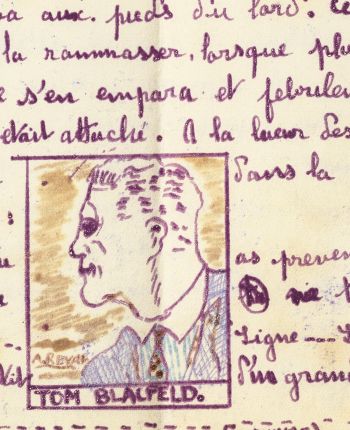 a aux. pieds du lord. Ce
la rammasser, lorsque plu
e s'en empara et febrile
etait attaché. A la lueur des
dans la
:
u
as preven
ne
Ligne --- L
d'un gran
TOM BLACFELD.